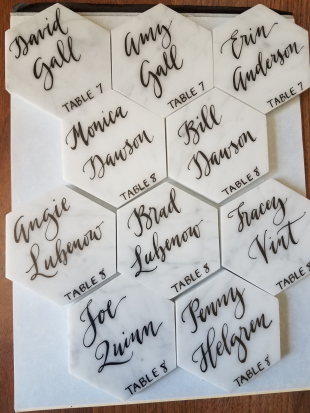 David
Gall
TABLE 7
Amy
Gall
TABLE 7
Erin
Anderson
TABLE 7
Monica
Dawson
TABLE 8
Bill
Dawson
TABLE 8
Angie
Lubenow
TABLE 8
Brad
Lubenow
TABLE 8
Tracey
Vint
TABLE 8
Joe
Quinn
TABLE 8
Penny
Helgren
TABLE 8